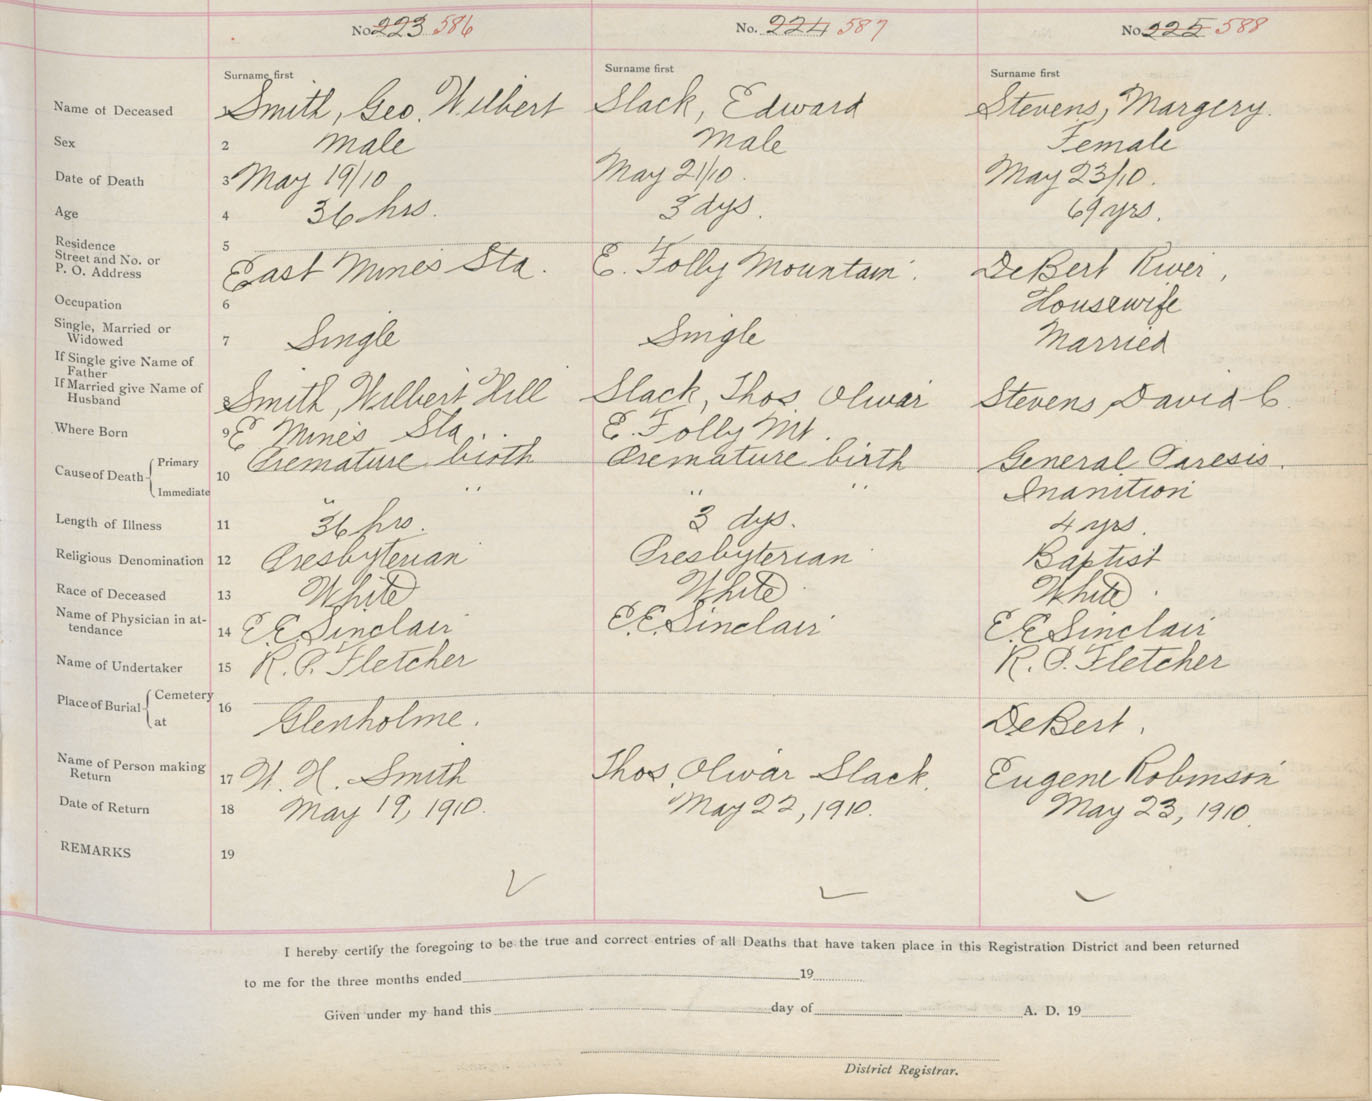 No. 223 586 No. 224 587 No. 225 588
Surname first Surname first Surname first
Name of Deceased 1 Smith, Geo. Wilbert Slack, Edward Stevens, Margery.
Sex 2 Male Male Female
Date of Death 3 May 19/10 May 21/10. May 23/10.
Age 4 36 hrs. 3 dys. 69 yrs.
Residence 5
Street and No. or
P. O. Address East Mines Sta. E. Folly Mountain. DeBert River,
Occupation 6 Housewife
Single, Married or
Widowed 7 Single Single Married
If Single give Name of
Father
If Married give Name of
Husband 8 Smith, Wilbert Hill Slack, Thos Olivar Stevens, David C.
Where Born 9 E Mines Sta. E. Folly Mt.
Cause of Death Primary 10 Premature birth Premature birth General Paresis.
Immediate " " " " Inanition
Length of Illness 11 36 hrs. 3 dys. 4 yrs.
Religious Denomination 12 Presbyterian Presbyterian Baptist
Race of Deceased 13 White White White
Name of Physician in at-
tendance 14 E.E. Sinclair E.E. Sinclair E.E. Sinclair
Name of Undertaker 15 R. P. Fletcher R. P. Fletcher
Place of Burial Cemetery 16
at Glenholme. DeBert.
Name of Person making
Return 17 W. H. Smith Thos. Olivar Slack. Eugene Robinson
Date of Return 18 May 19, 1910. May 22, 1910. May 23, 1910.
REMARKS 19
I hereby certify the foregoing to be the true and correct entries of all Deaths that have taken place in this Registration District and been returned
to me for the three months ended 19
Given under my hand this day of A. D. 19
District Registrar.